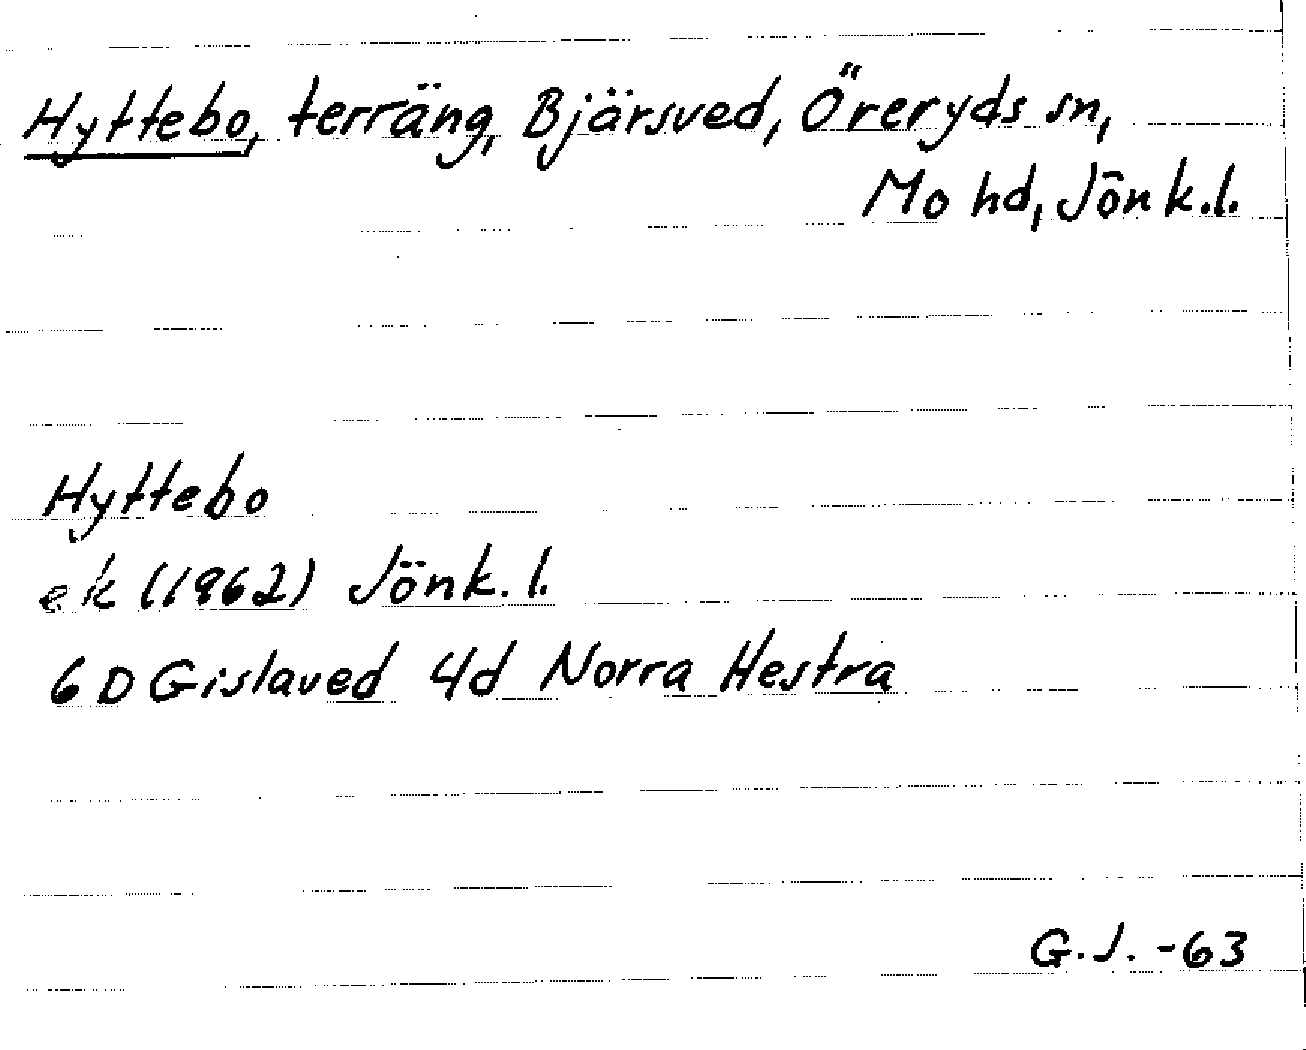 Hyttebo, terräng, Bjärsved, Öreryds sn,
Mo hd, Jönk.l.
Hyttebo
ek (1962) Jönk. l.
6 D Gislaved 4d Norra Hestra
G.J. -63